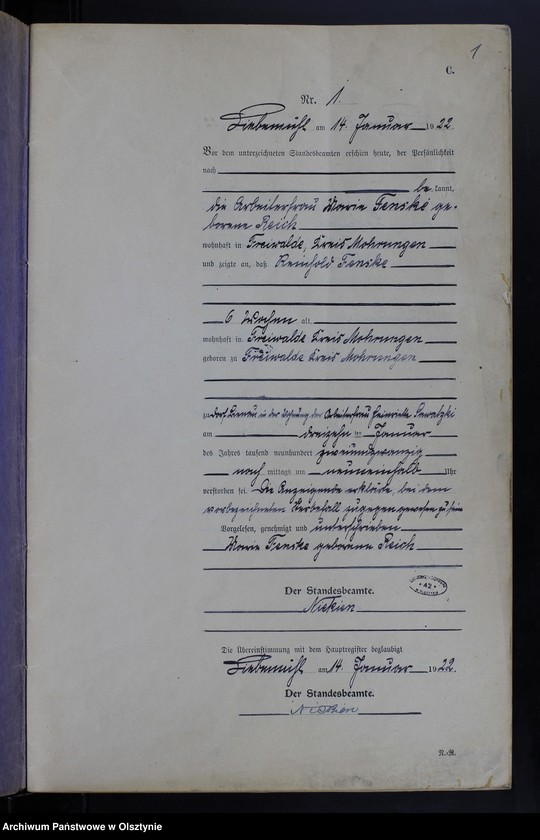 1
C.
Nr. 1.
Liebemühl am 14. Januar 1922.
Vor dem unterzeichneten Standesbeamten erschien heute, der Persönlichkeit
nach
be kannt,
die Arbeiterfrau Marie Fenske ge-
borene Reich
wohnhaft in Freiwalde, Kreis Mohrungen
und zeigte an, daß Reinhold Fenske
6 Wochen alt
wohnhaft in Freiwalde Kreis Mohrungen
geboren zu Freiwalde Kreis Mohrungen
zu Dorf Bienau in der Wohnung der Arbeiterfrau Heinriette Sawatzki
am dreizehn ten Januar
des Jahres tausend neunhundert zweiundzwanzig
nach mittags um neuneinhalb Uhr
verstorben sei. Die Anzeigende erklärte, bei dem
vorbezeichneten Sterbefall zugegen gewesen zu sein
Vorgelesen, genehmigt und unterschrieben
Marie Fenske geborene Reich
Der Standesbeamte.
Die Übereinstimmung mit dem Hauptregister beglaubigt
Liebemühl am 14. Januar 1922.
Der Standesbeamte.
Archiwum Państwowe w Olsztynie